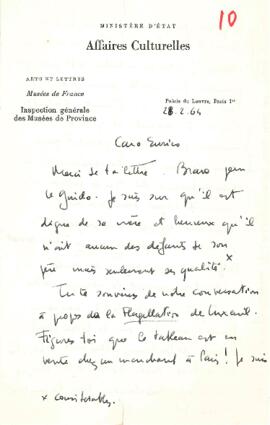 10
MINISTÈRE D'ÉTAT
Affaires Culturelles
ARTS ET LETTRES
Musées de France
Inspection générale
des Musées de Province
Palais du Louvre, Paris 1er
28.2.64
Caro Enrico
Merci de ta lettre. Bravo pour
le Guido. Je suis sur qu'il est
digne de sa mère et heureux qu'il
n'ait aucun des défauts de son
père mais seulement ses qualités.x
Tu te souviens de notre conversation
à propos de la Flagellation de
Figures toi que ce tableau est en
vente chez un marchand à Paris! Je suis
x considérables.